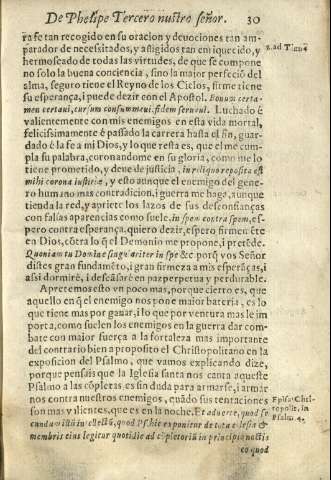 De Phelipe Tercero nuestro señor. 30
ra fe tan recogido en su oracion y deuociones tan am-
parador de necesitados, y afligidos tan enriquecido, y
hermoseado de todas las virtudes, de que se compone
no solo la buena conciencia, sino la mayor perfeciō del
alma, seguro tiene el Reyno de los Cielos, firme tiene
su esperança, i puede dezir con el Apostol. Bonum certa-
men certaui, cursum consummaui, fidem seruaui. Luchado é
valientemente con mis enemigos en esta vida mortal,
felicissimamente é passado la carrera hasta el fin, guar-
dado é la fe a mi Dios, y lo que resta es, que el me cum-
pla su palabra, coronandome en su gloria, como me lo
tiene prometido, y deue de justicia, in reliquo reposita est
mihi corona iustitiæ, y esto aunque el enemigo del gene-
ro humano mas contradicion, i guerra me haga, aunque
tienda la red, y apriete los lazos de sus desconfianças
con falsas apariencias como suele, in spem contra spem, es-
pero contra esperança, quiero dezir, espero firmemēte
en Dios, cōtra lo q̃ el Demonio me propone, i pretēde.
Quoniam tu Domine singulariter in spe &c porq̃ vos Señor
distes gran fundamēto, i gran firmeza a mis esperāças, i
assi dormiré, i descāsaré en paz perpetua y perdurable.
Apretemos esto vn poco mas, porque cierto es, que
aquello en q̃ el enemigo nos pone maior bateria, es lo
que tiene mas por ganar, i lo que por ventura mas le im
porta, como suelen los enemigos en la guerra dar com-
bate con maior fuerça a la fortaleza mas importante
del contrario bien a proposito el Christopolitano en la
exposicion del Psalmo, que vamos explicando dize,
porque pensais que la Iglesia santa nos canta aqueste
Psalmo a las cōpletas, es sin duda para armarse, i armar
nos contra nuestros enemigos, cuādo sus tentaciones
son mas valientes, que es en la noche. Et aduerte, quod se
cundum istū intellectū, quod Psalmus exponitur de tota ecclesia &
membris eius legitur quotidie ad cōpletoriū in principio noctis
eo quod
2. ad Timo
Episc. Chri-
topolit. in
Psalm. 4.